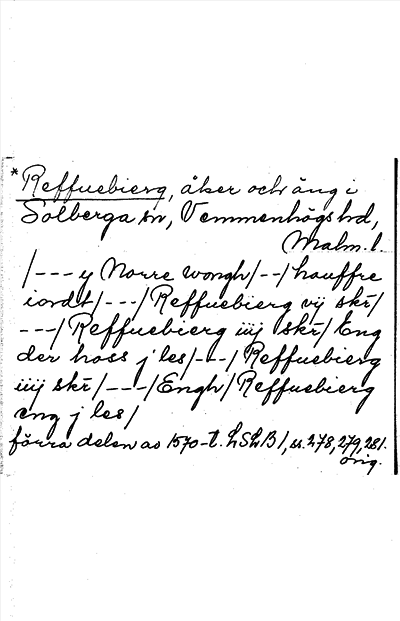 * Reffuebierg, åker och äng i
Solberga sn, Vemmenhögs hd,
Malm. l.
/--- y Norre wongh/--/hauffre
iordt/---/Reffuebierg vij skr/
---/Reffuebierg iiij skr/Eng
der hoss j les/---/Reffuebierg
iiij skr/---/Engh/Reffuebierg
eng j les/
förra delen av 1570-t. LSLB 1, ss. 278, 279, 281.
orig.